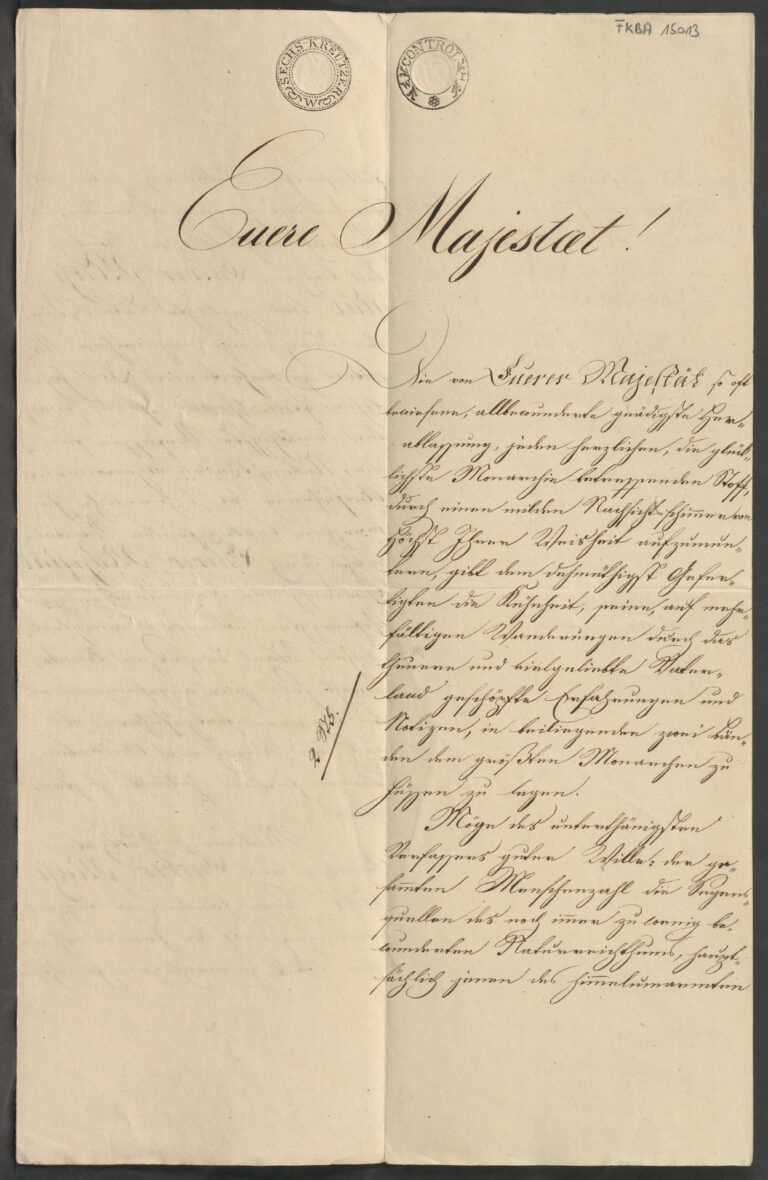 FKBA 15013
SECHS KREUTZER
CONTROL
Euere Majestæt!
Die von Euerer Majestät so oft
bewiesene, allbewunderte gnädigste Her-
ablassung, jeden herzlichen, die glück-
lichste Monarchie betreffenden Stoff,
durch einen milden Nachsichtsschimmer von
Höchst Ihrer Weisheit aufzumun-
tern, gibt dem dehmüthigst Gefer-
tigten die Kühnheit, seine, auf mehr-
fältigen Wanderungen durch das
theuere und vielgeliebte Vater-
land geschöpfte Erfahrungen und
Notizen, in beiliegenden zwei Bän-
den dem größten Monarchen zu
Füssen zu legen.
Möge des unterthänigsten
Verfassers guter Wille: der ge-
sammten Menschenzahl die Segens-
quellen des noch immer zu wenig be-
wunderten Naturreichthums, haupt-
sächlich jenen des himmelumarmten